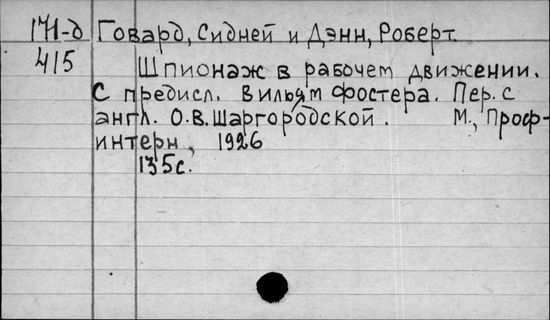 171-д Говард, Сидней и Дэнн, Роберт.
415 Шпионаж в рабочем движении.
С предисл. Вильям Фостера. Пер. с
англ. О.В. Шаргородской. М., Проф-
интерн, 1926
135с.